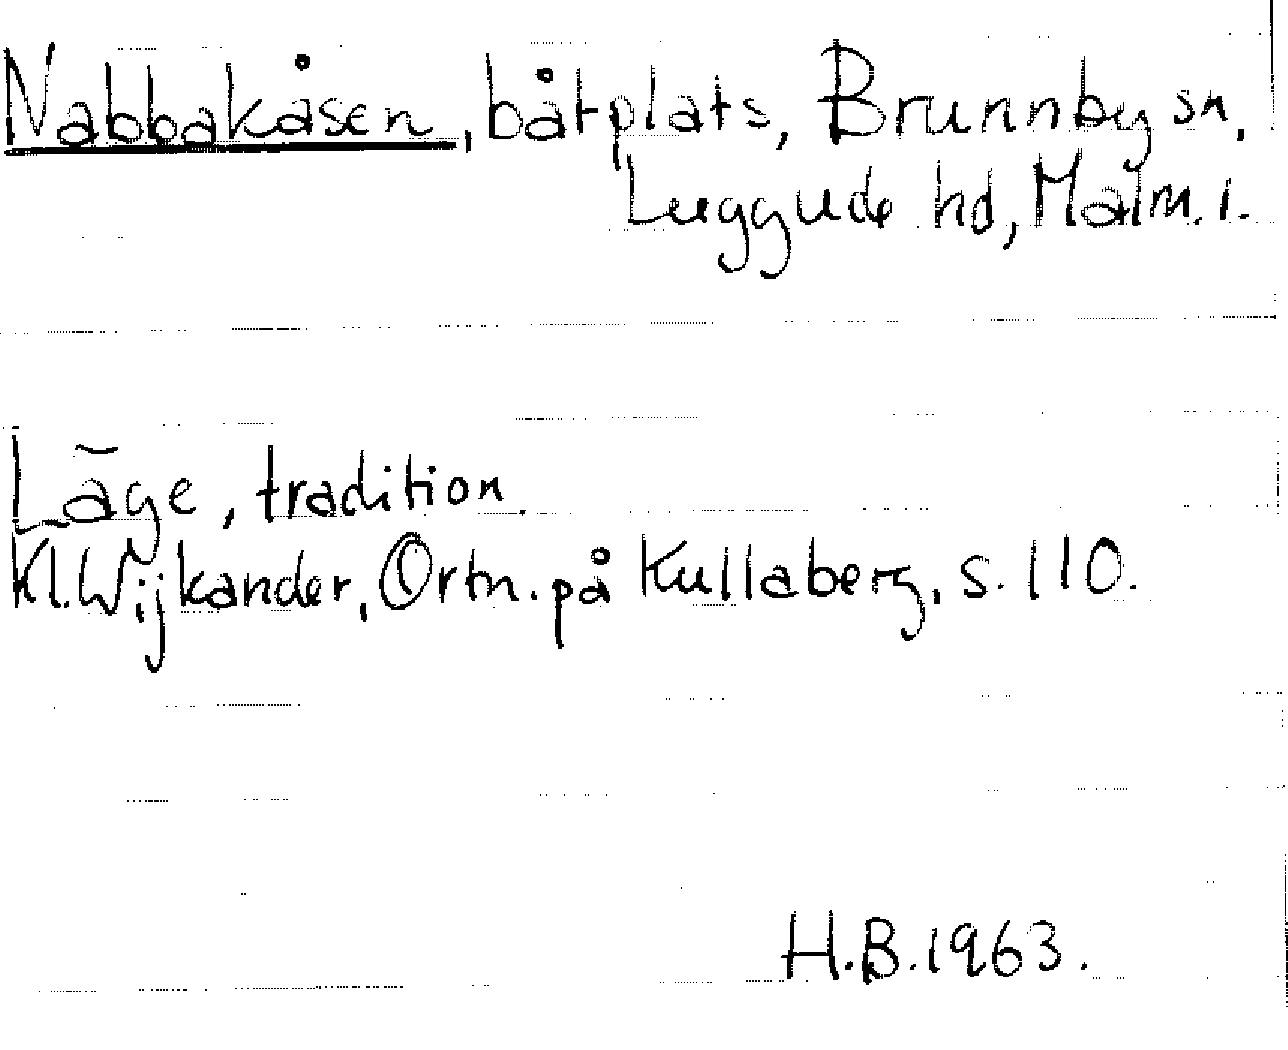 Nabbakåsen, båtplats, Brunnby sn,
Luggude hd, Malm. l.
Läge, tradition.
Kl. Wijkander, Ortn. på Kullaberg, s. 110.
H.B. 1963.